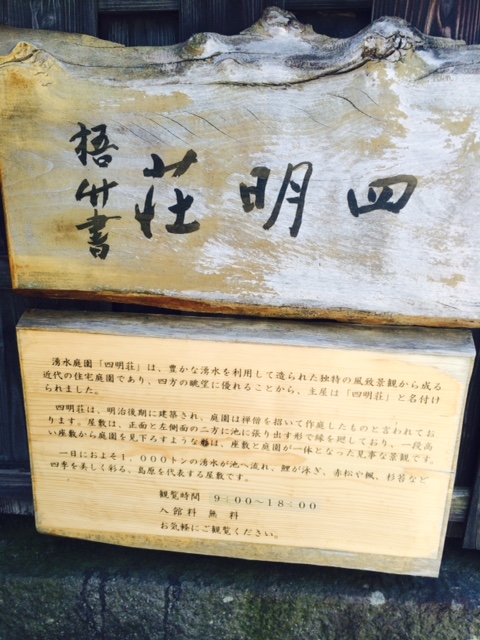 四明荘
梧竹書
湧水庭園「四明荘」は、豊かな湧水を利用して造られた独特の風致景観から成る
近代の住宅庭園であり、四方の眺望に優れることから、主屋は「四明荘」と名付け
られました。
四明荘は、明治後期に建築され、庭園は禅僧を招いて作庭したものと言われてお
ります。座敷は、正面と左側面の二方に池に張り出す形で縁を廻しており、一段高
い座敷から庭園を見下ろすような様は、座敷と庭園が一体となった見事な景観です。
一日におよそ1,000トンの湧水が池へ流れ、鯉が泳ぎ、赤松や楓、杉苔など
四季を美しく彩る、島原を代表する屋敷です。
観覧時間 9:00～18:00
入館料 無料
お気軽にご観覧ください。